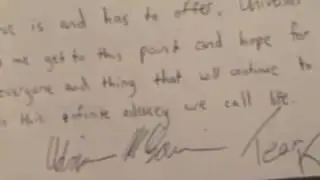 is and has to offer. Universe
me get to this point and hope for
everyone and thing that will continue to
this infinite odyssey we call life.